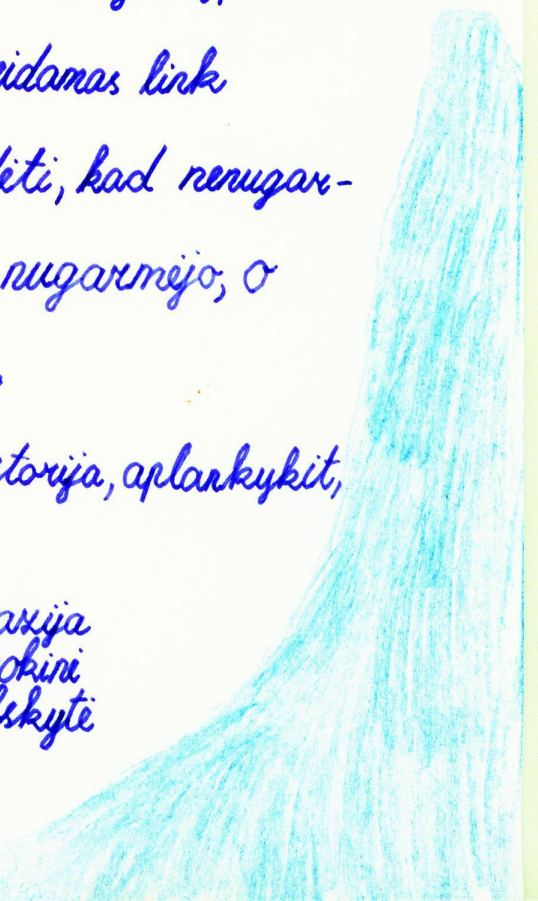 eidamas link
dėti, kad nenugar-
nugarmėjo, o
torija, aplankykit,
azija
okinė
skytė